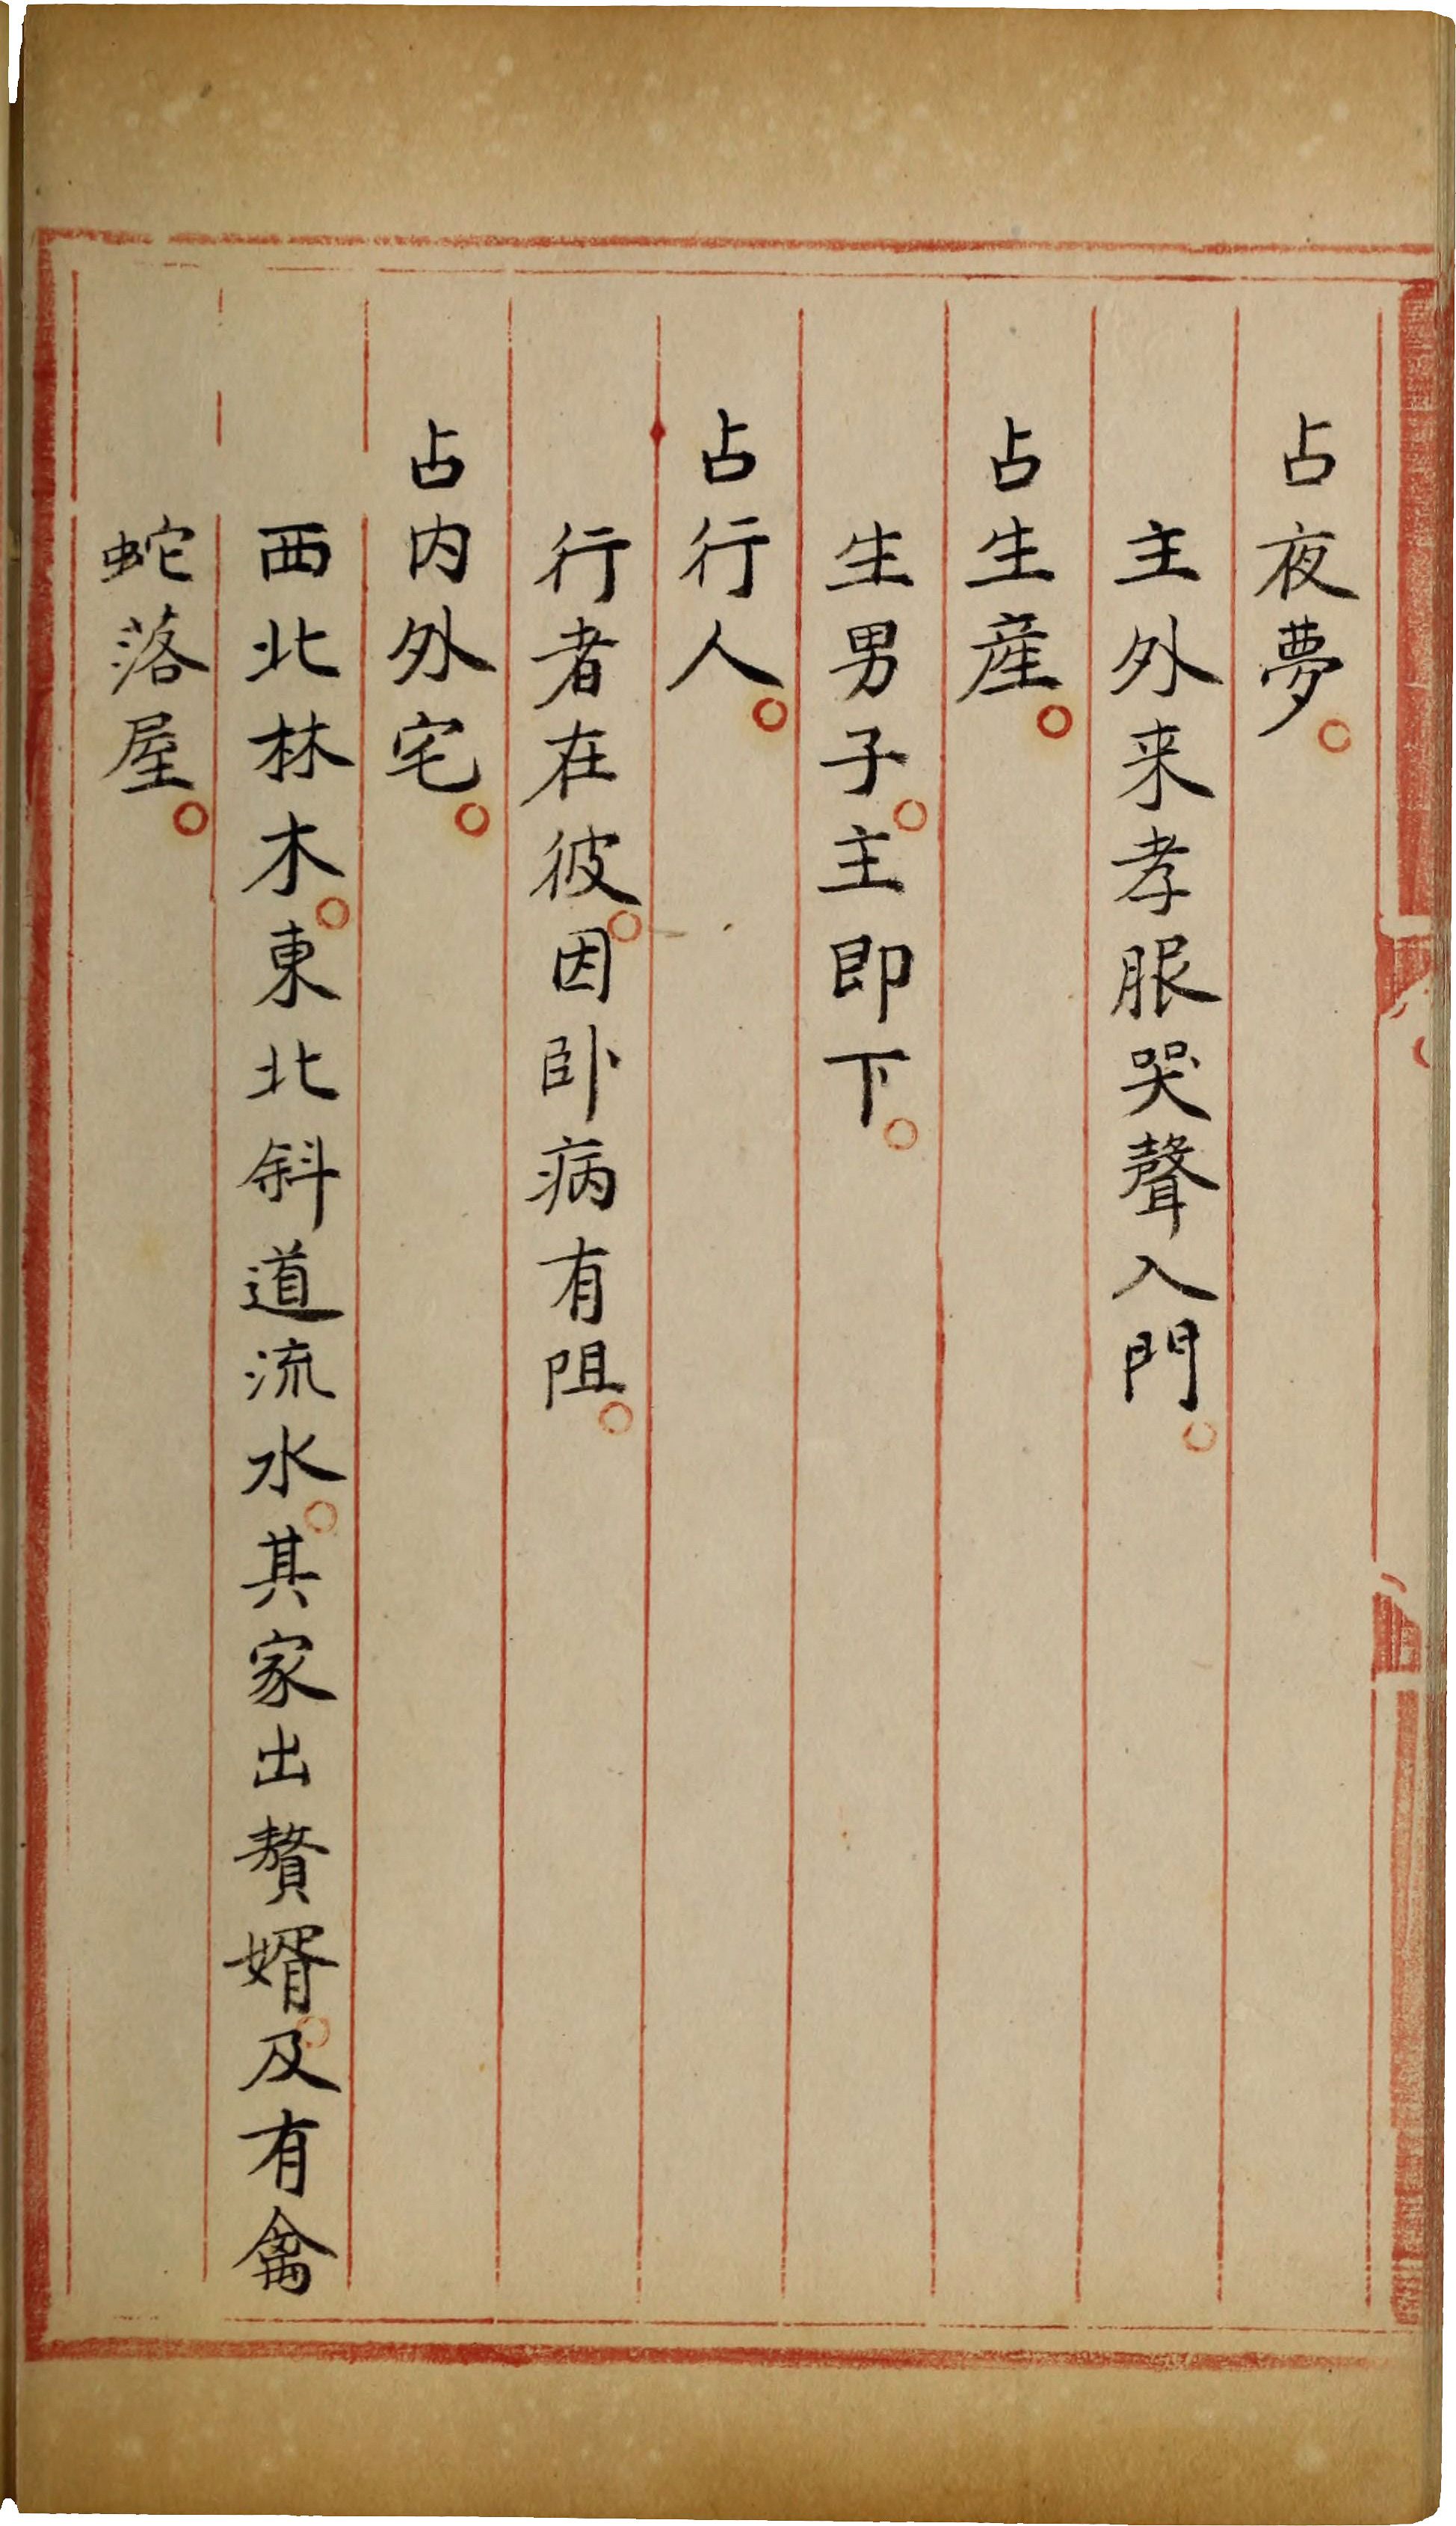 占夜夢。
主外来孝服哭聲入門。
占生産。
生男子。主即下。
占行人。
行者在彼。因卧病有阻。
占内外宅。
西北林木。東北斜道流水。其家出贅婿。及有禽
蛇落屋。